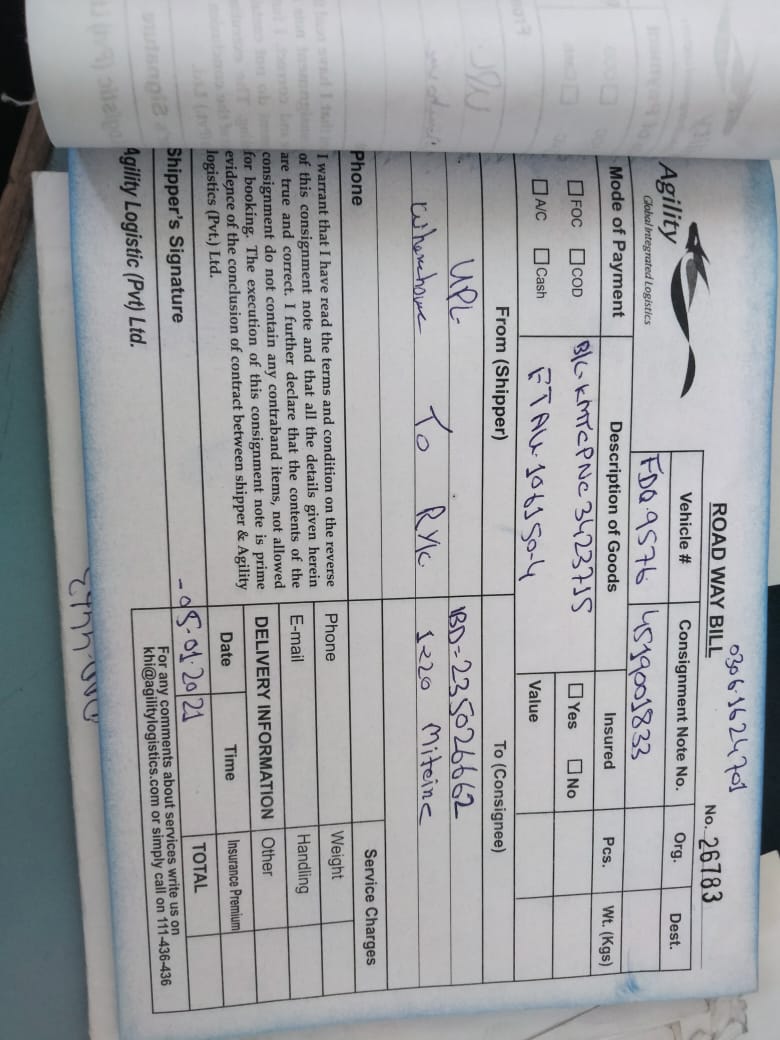 0306-1624701
ROAD WAY BILL
No. 26783
Agility
Global Integrated Logistics
Vehicle # Consignment Note No. Org. Dest.
FDQ-9576 4519001833
Mode of Payment Description of Goods Insured Pcs. Wt. (Kgs)
FOC COD B/L-KMTCPNC3423715 Yes No
A/C Cash FTAU-106150-4 Value
From (Shipper) To (Consignee)
UPL IBD=235026662
Wherehouse To RYK 1220
Phone Service Charges
I warrant that I have read the terms and condition on the reverse
of this consignment note and that all the details given herein
are true and correct. I further declare that the contents of the
consignment do not contain any contraband items, not allowed
for booking. The execution of this consignment note is prime
evidence of the conclusion of contract between shipper & Agility
logistics (Pvt.) Ltd.
Phone Weight
E-mail Handling
DELIVERY INFORMATION Other
Date Time Insurance Premium
05-01-2021 TOTAL
Shipper's Signature
For any comments about services write us on
khi@agilitylogistics.com or simply call on 111-436-436
Agility Logistic (Pvt) Ltd.